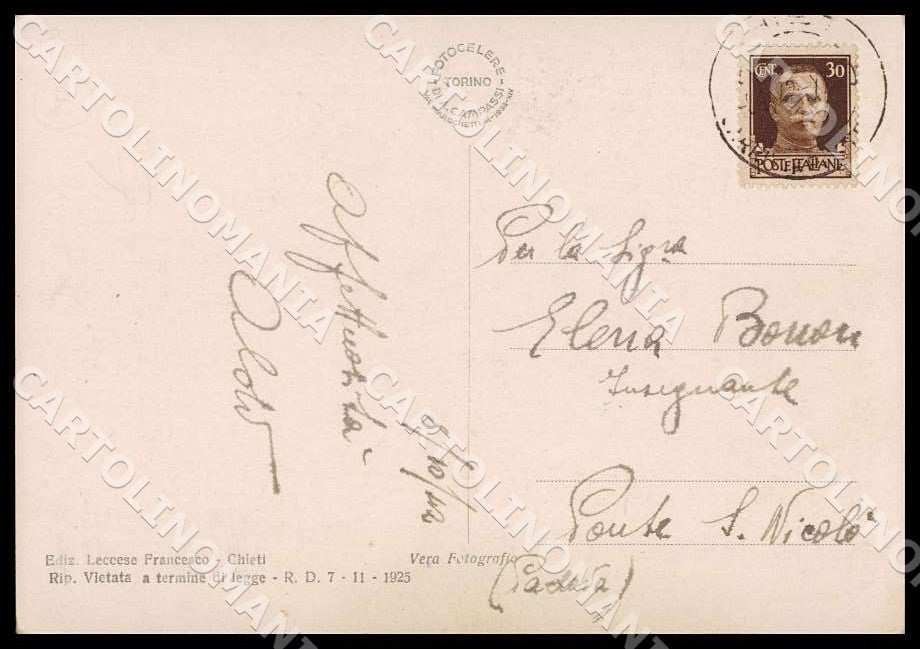 FOTOCELERE
TORINO
DI A. CAMPASSI
CENT. 30
POSTE ITALIANE
Per la Sig.ra
Elena
Insegnante
Ponte S. Nicolò
(Padova)
Affettuosità
Aldo
8/10/42
Ediz. Leccese Francesco - Chieti
Vera Fotografia
Rip. Vietata a termine di legge - R. D. 7 - 11 - 1925
CARTOLINOMANIA
CARTOLINOMANIA
CARTOLINOMANIA
CARTOLINOMANIA
CARTOLINOMANIA
CARTOLINOMANIA